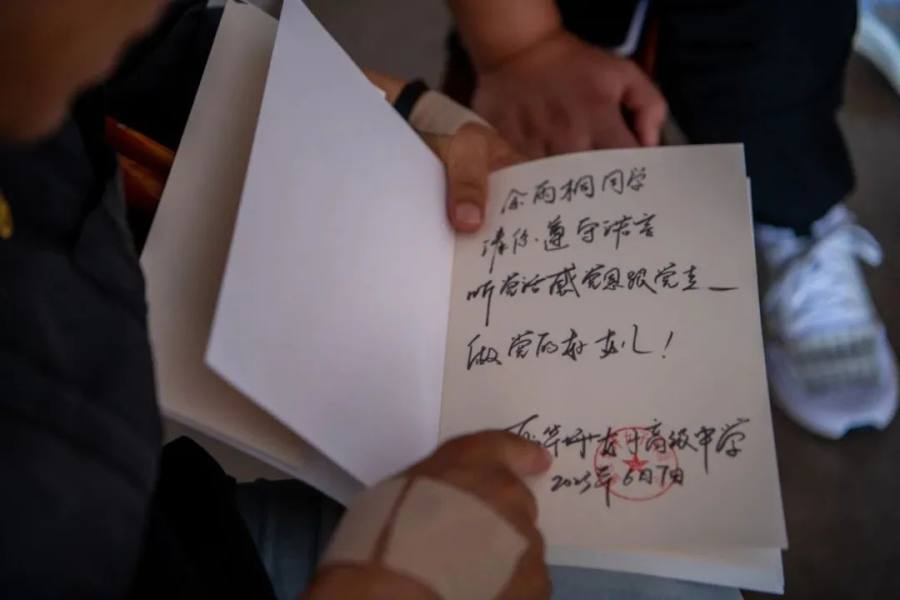 余雨桐同学
请你遵守诺言
听党话感党恩跟党走
做党的好孩儿!
高级中学
2025年6月7日